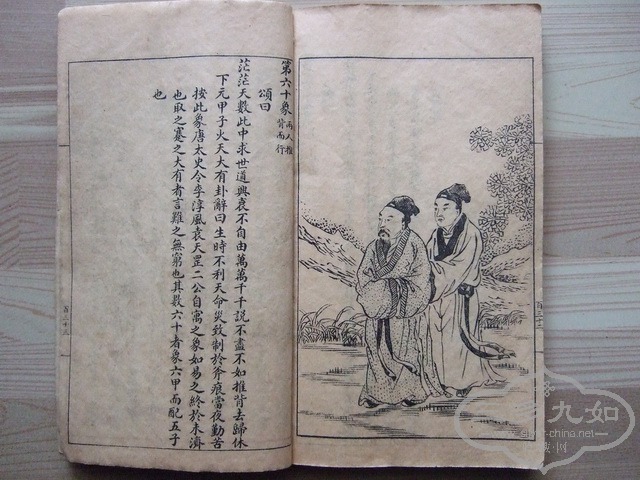 第六十象 兩人推背而行
頌曰
茫茫天數此中求世道興衰不自由萬萬千千說不盡不如推背去歸休
下元甲子火天大有卦辭曰生時不利天命災致制於斧痕當夜勤苦
按此象唐太史令李淳風袁天罡二公自寓之象如易之終於未濟
也取之蹇之大有者言難之無窮也其數六十者象六甲而配五子
也
百三十三
九如
china.net
藏·网